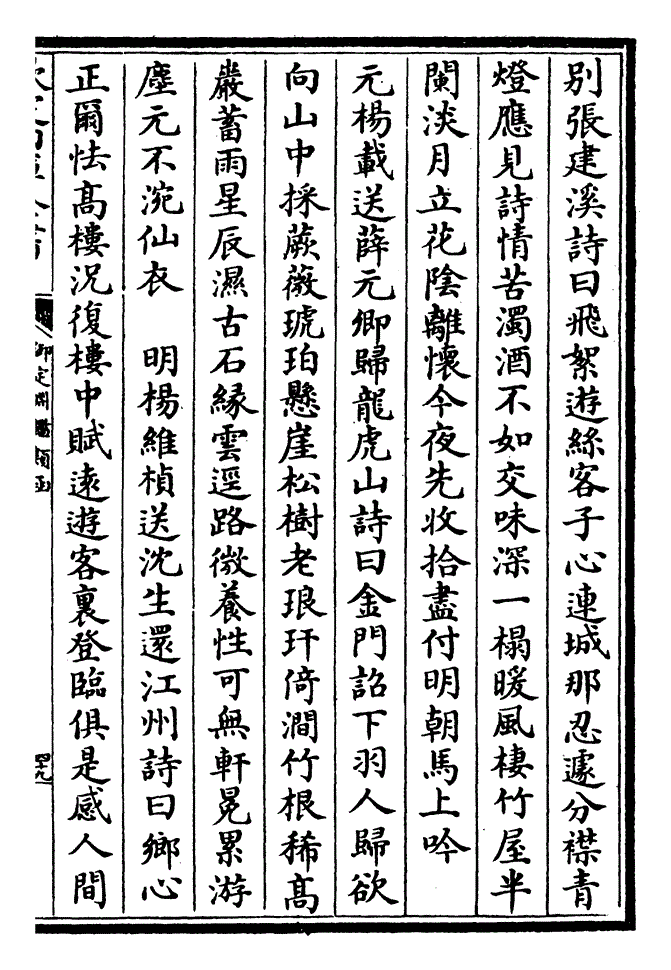 别張建溪詩曰飛絮遊絲客子心連城那忍遽分襟青
燈應見詩情苦濁酒不如交味深一榻暖風棲竹屋半
闌淡月立花陰離懷今夜先收拾盡付明朝馬上吟
元楊載送薛元卿歸龍虎山詩曰金門詔下羽人歸欲
向山中採蕨薇琥珀懸崖松樹老琅玕倚澗竹根稀髙
巖蓄雨星辰濕古石緣雲逕路微養性可無軒冕累游
塵元不涴仙衣　明楊維楨送沈生還江州詩曰鄉心
正爾怯髙樓况復樓中賦逺遊客裏登臨俱是感人間
御定淵鑑類函
四十九